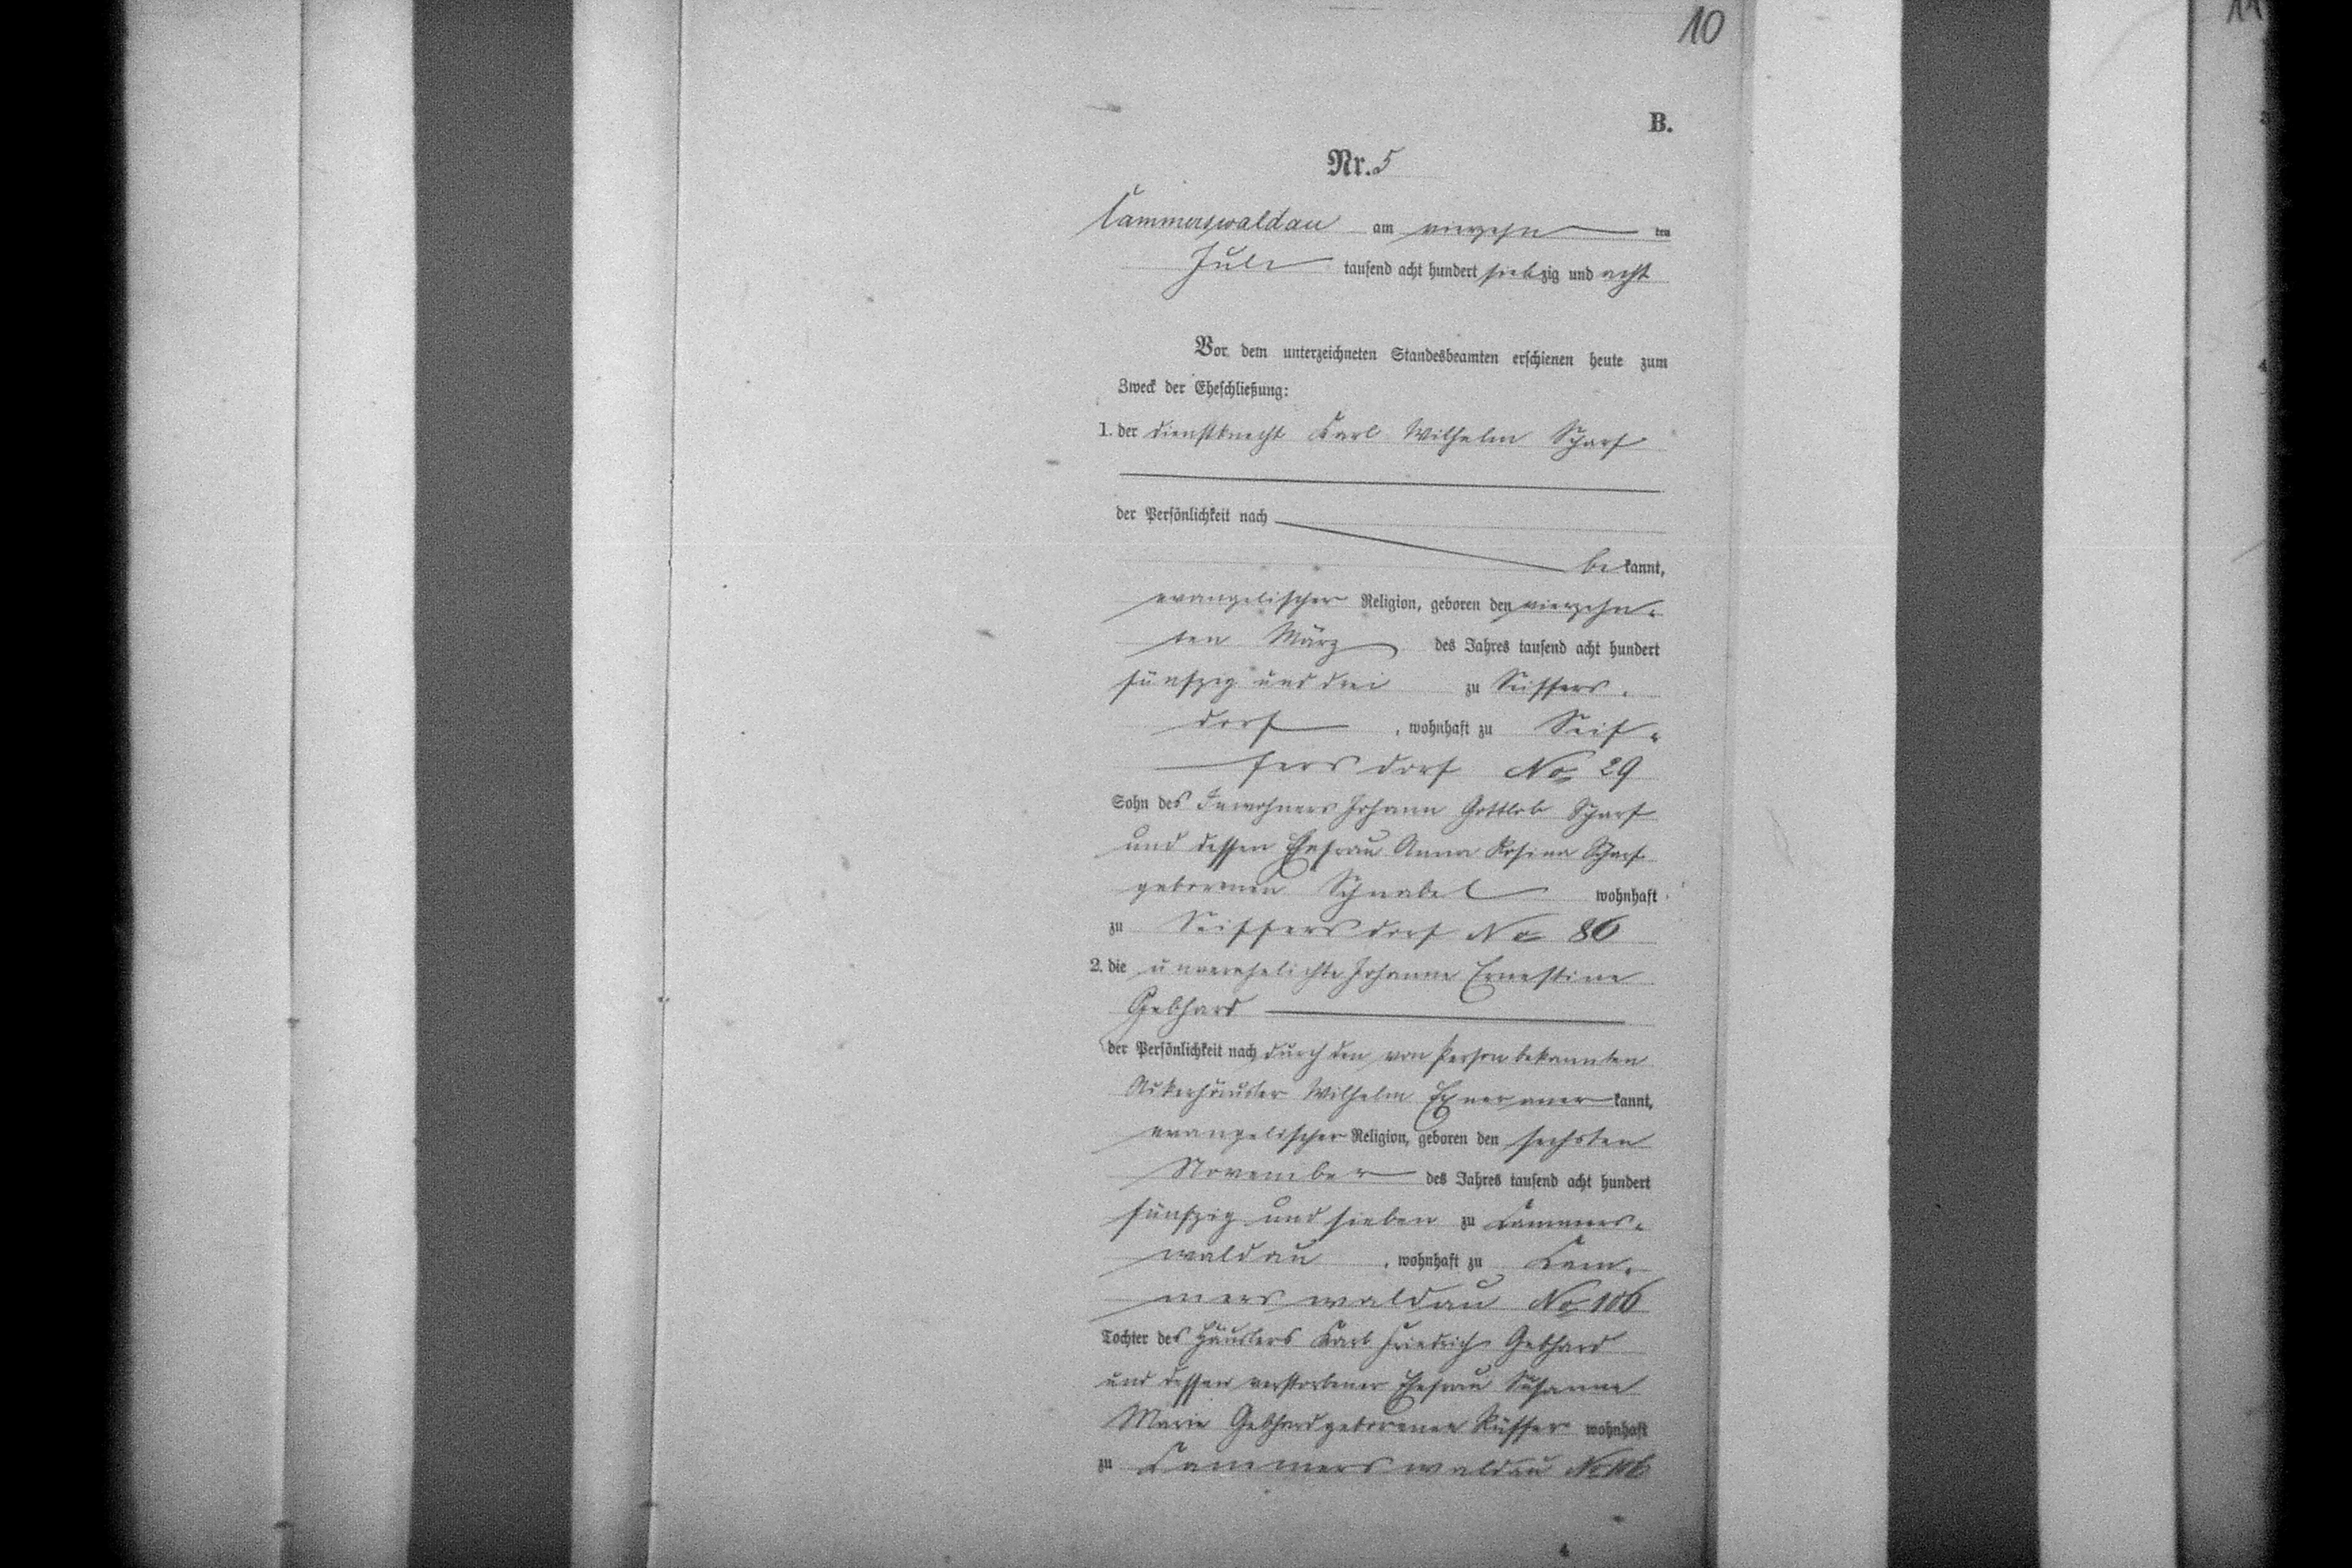 10
11
B.
Nr. 5
Cammerswaldau am vierzehn ten
Juli tausend acht hundert siebzig und acht
Vor dem unterzeichneten Standesbeamten erschienen heute zum
Zweck der Eheschließung:
1. der Dienstknecht Karl Wilhelm Scharf
der Persönlichkeit nach
be kannt,
evangelischer Religion, geboren den vierzehn-
ten März des Jahres tausend acht hundert
fünfzig und drei zu Seiffers-
dorf, wohnhaft zu Seif-
fersdorf No 29
Sohn des Inwohners Johann Gottlob Scharf
und dessen Ehefrau Anna Rosina Scharf
geborenen Schnabel wohnhaft
zu Seiffersdorf No 86
2. die unverehelichte Johanne Ernestine
Gebhard
der Persönlichkeit nach durch den von Person bekannten
Ackerhäusler Wilhelm Exner aner kannt,
evangelischer Religion, geboren den sechsten
November des Jahres tausend acht hundert
fünfzig und sieben zu Cammers-
waldau, wohnhaft zu Cam-
merswaldau No 106
Tochter des Häuslers Karl Friedrich Gebhard
und dessen verstorbener Ehefrau Susanne
Marie Gebhard geborenen wohnhaft
zu Cammerswaldau No 106
4